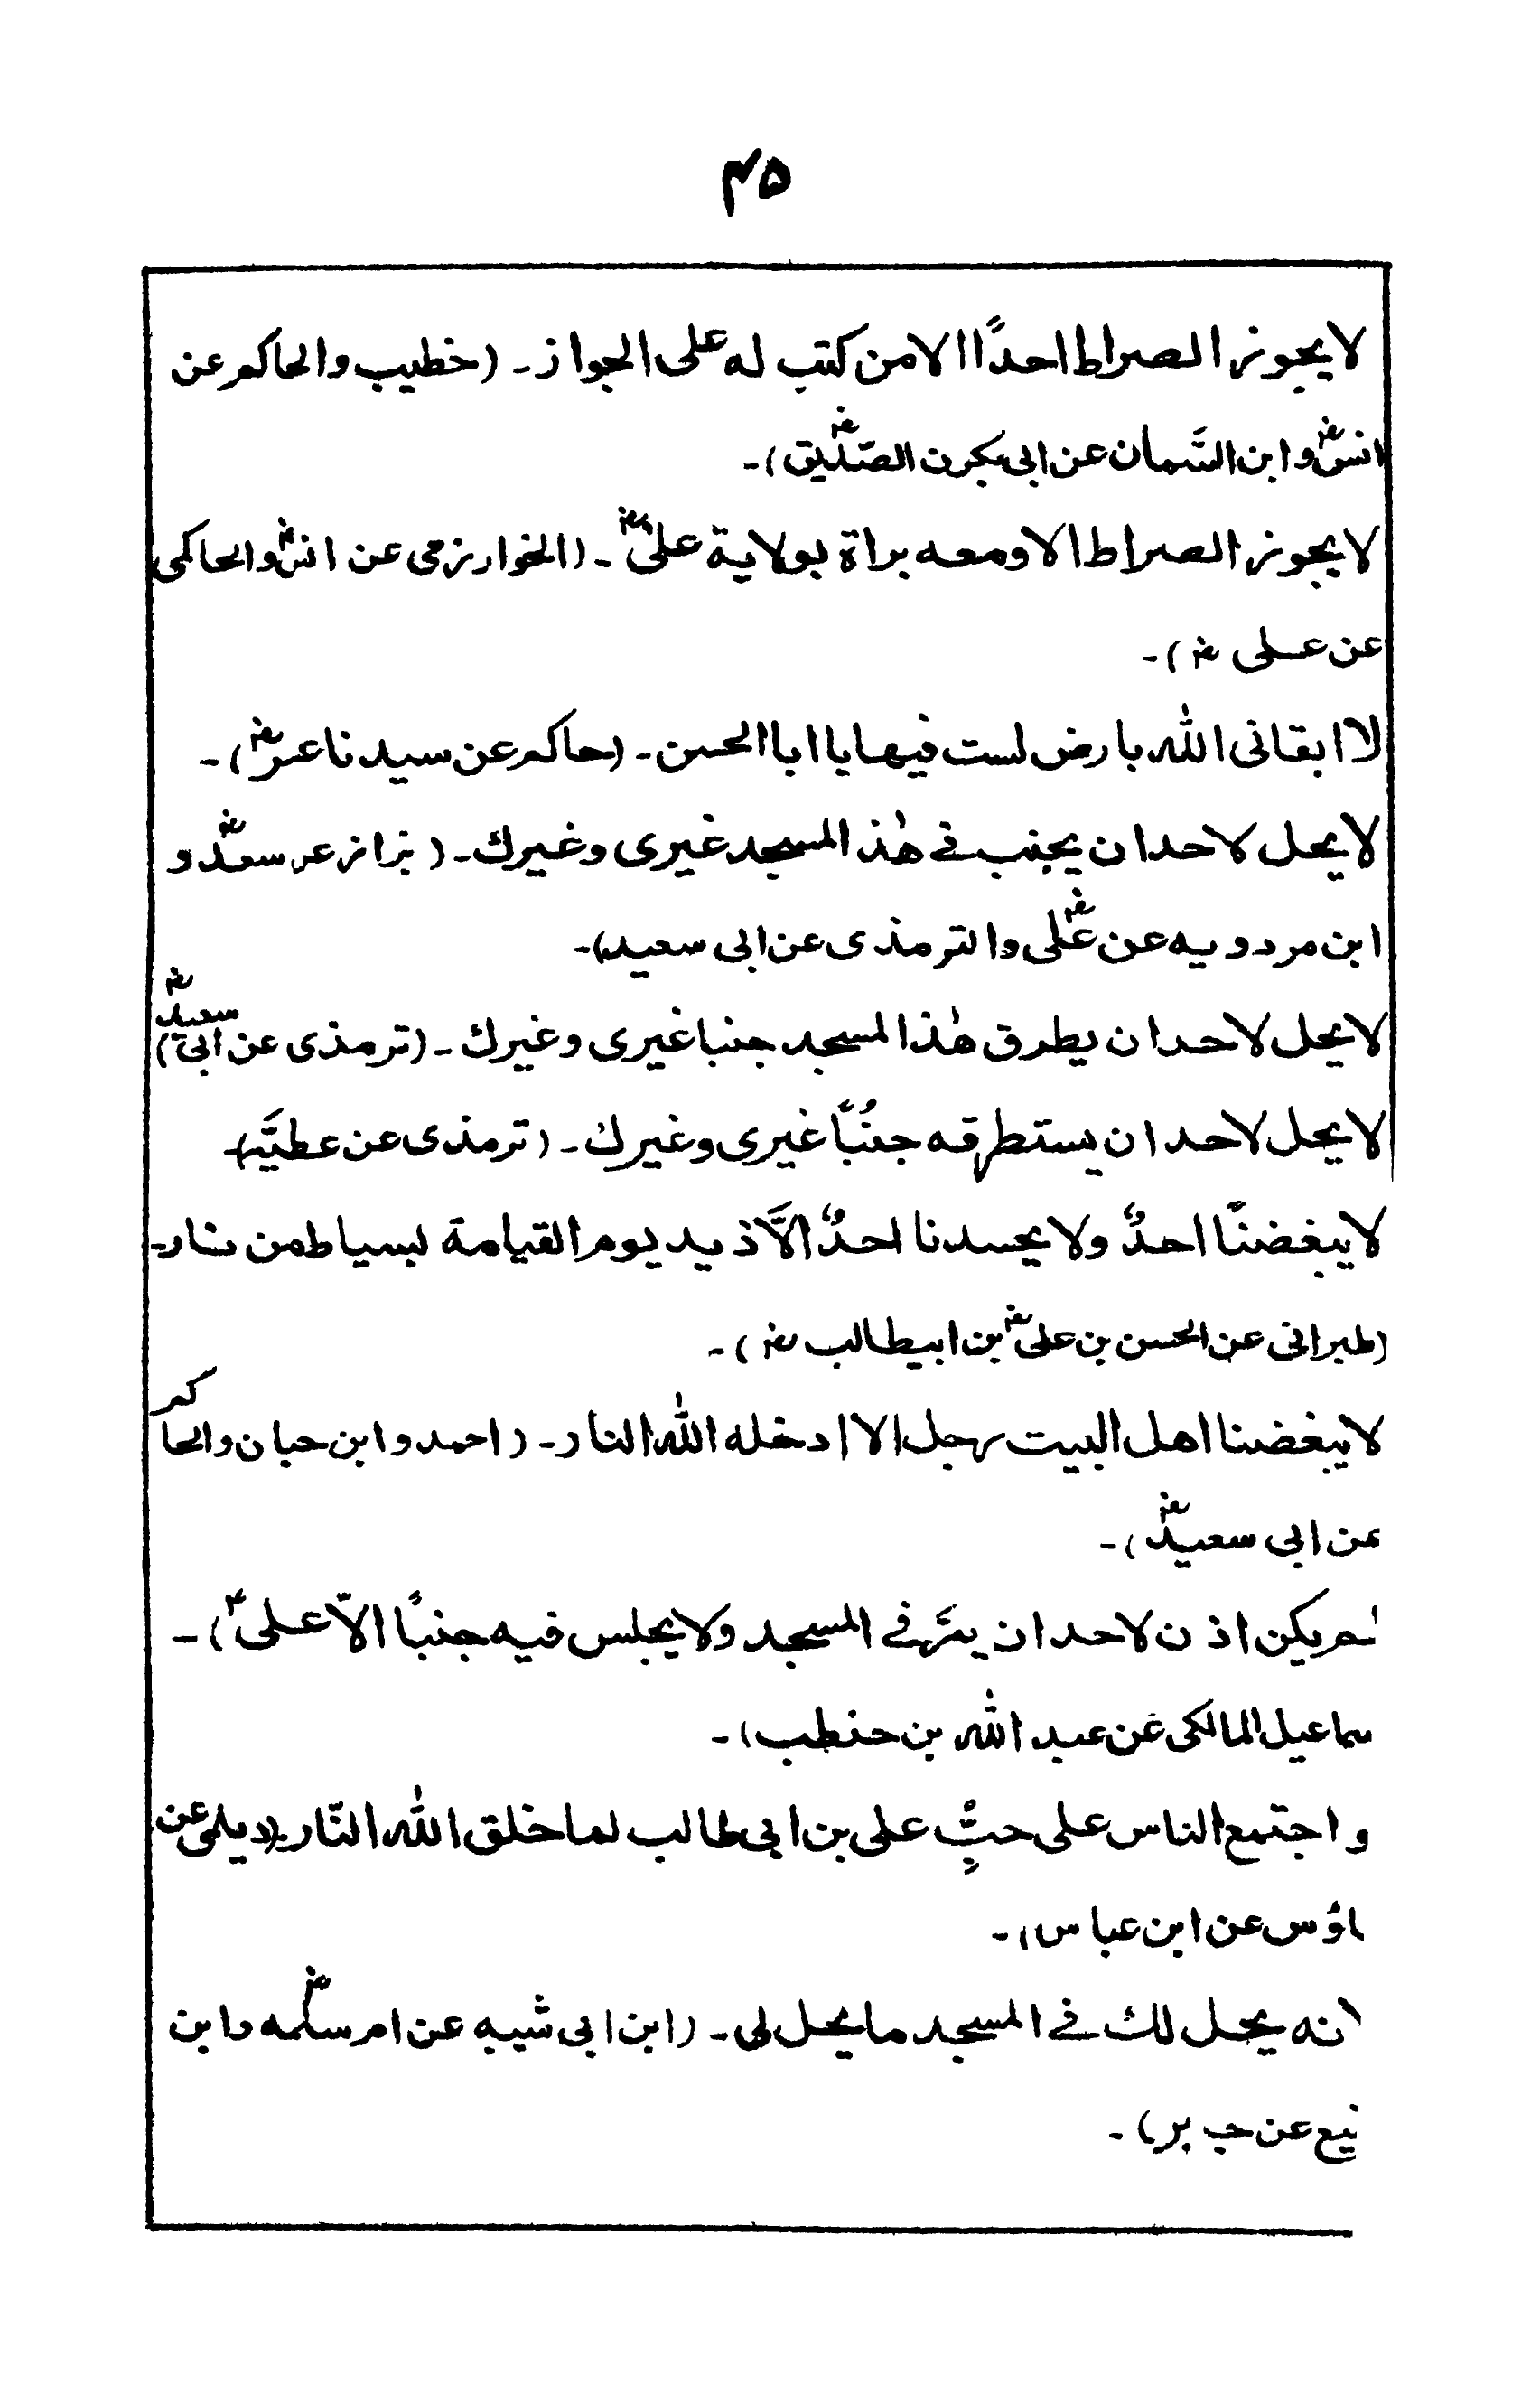 ۴۵
لا يجوز الصراط احدًا الا من كتب له على الجواز ۔ (خطيب والحاكم عن
انسؓ و ابن السَّمان عن ابى بكرن الصّدّيقؓ)۔
لا يجوز الصراط الا ومعه براة بولاية علىؓ ۔ (الخوارزمى عن انسؓ والحاكمى
عن على ؓ)۔
لا ابقانى الله بارض لست فيها يا ابا الحسن ۔ (حاكم عن سيدنا عمرؓ)۔
لا يحل لاحد ان يجنب فے هٰذ المسجد غيرى وغيرك ۔ (بزاز عن سعدؓ و
ابن مردويه عن علىؓ والترمذى عن ابى سعيد)۔
لا يحل لاحد ان يطرق هٰذا المسجد جنبا غيرى وغيرك ۔ (ترمذى عن ابى سعيدؓ)
لا يحل لاحد ان يستطرقه جنُبًا غيرى وغيرك ۔ (ترمذى عن عطيَّه)
لا يبغضنا احدٌ ولا يحسدنا احدٌ الَّا ذيد يوم القيامة بسياط من نار۔
(طبرانى عن الحسن بن علىؓ بن ابيطالب ؓ)۔
لا يبغضنا اهل البيت رجل الا ادخله الله النار ۔ (احمد و ابن حبان والحاكم
عن ابى سعيدؓ)۔
لم يكن اذن لاحد ان يمَّر فے المسجد ولا يجلس فيه جنبًا الاّ علىؑ)۔
سماعيل المالكى عن عبد الله بن حنطب)۔
و اجتمع الناس على حبِّ على بن ابى طالب لما خلق الله النّار۔ (ديلمى عن
اؤس عن ابن عباس)۔
انه يحل لك فے المسجد ما يحل لى ۔ (ابن ابى شيبه عن ام سلمهؓ وابن
نيع عن جابر)۔